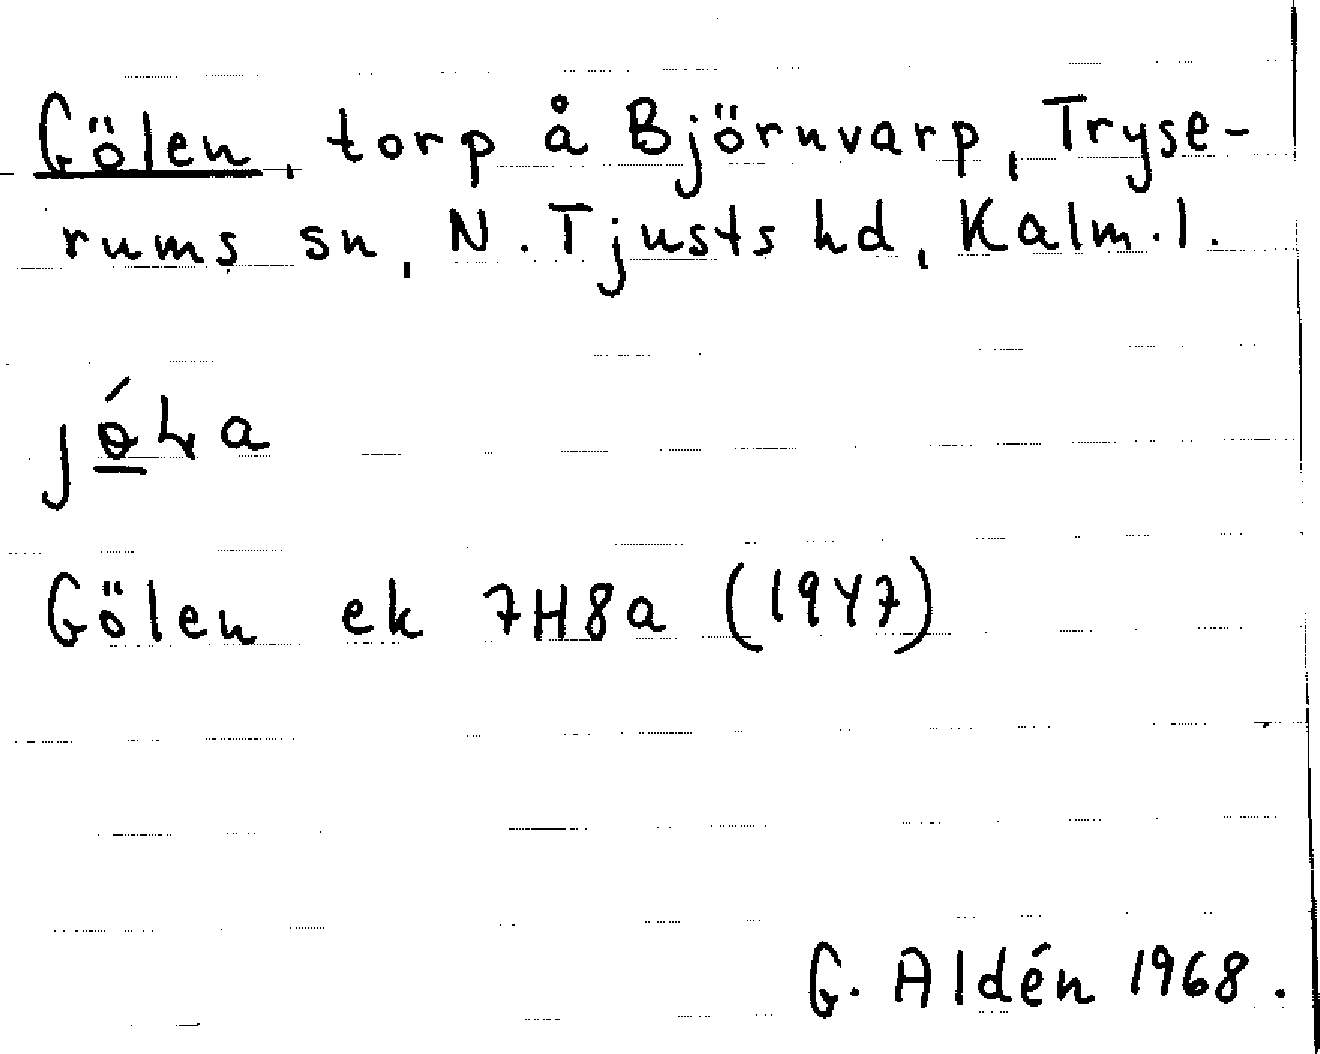 Gölen, torp å Björnvarp, Tryse-
rums sn, N. Tjusts hd, Kalm. l.
Gölen ek 7H8a (1947)
G. Aldén 1968.